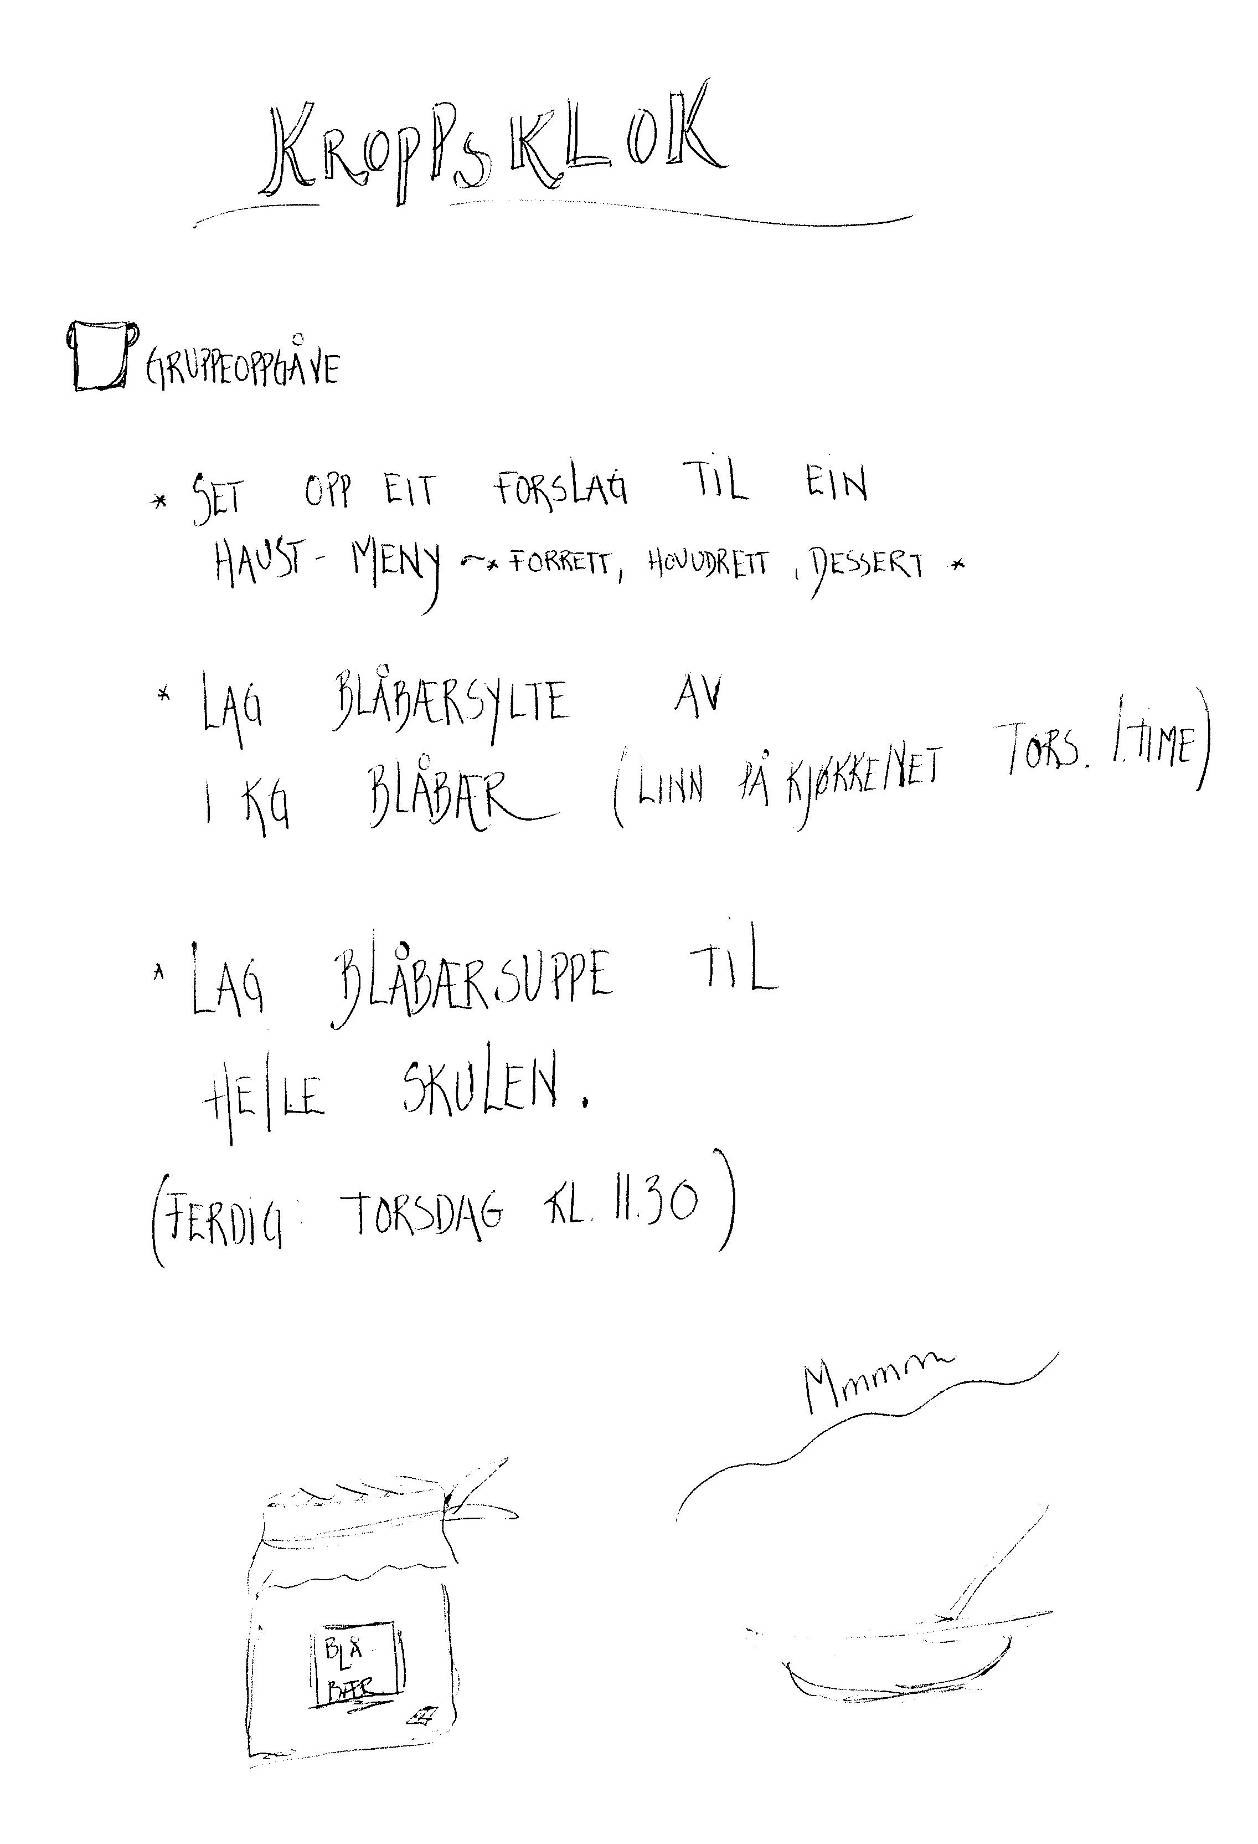 KROPPSKLOK
GRUPPEOPPGÅVE
* SET OPP EIT FORSLAG TIL EIN
HAUST - MENY ~* FORRETT, HOVUDRETT, DESSERT *
* LAG BLÅBÆRSYLTE AV
1 KG BLÅBÆR (LINN PÅ KJØKKENET TORS. 1. TIME)
* LAG BLÅBÆRSUPPE TIL
HEILE SKULEN.
(FERDIG: TORSDAG KL. 11.30)
Mmmmm
BLÅ
BÆR